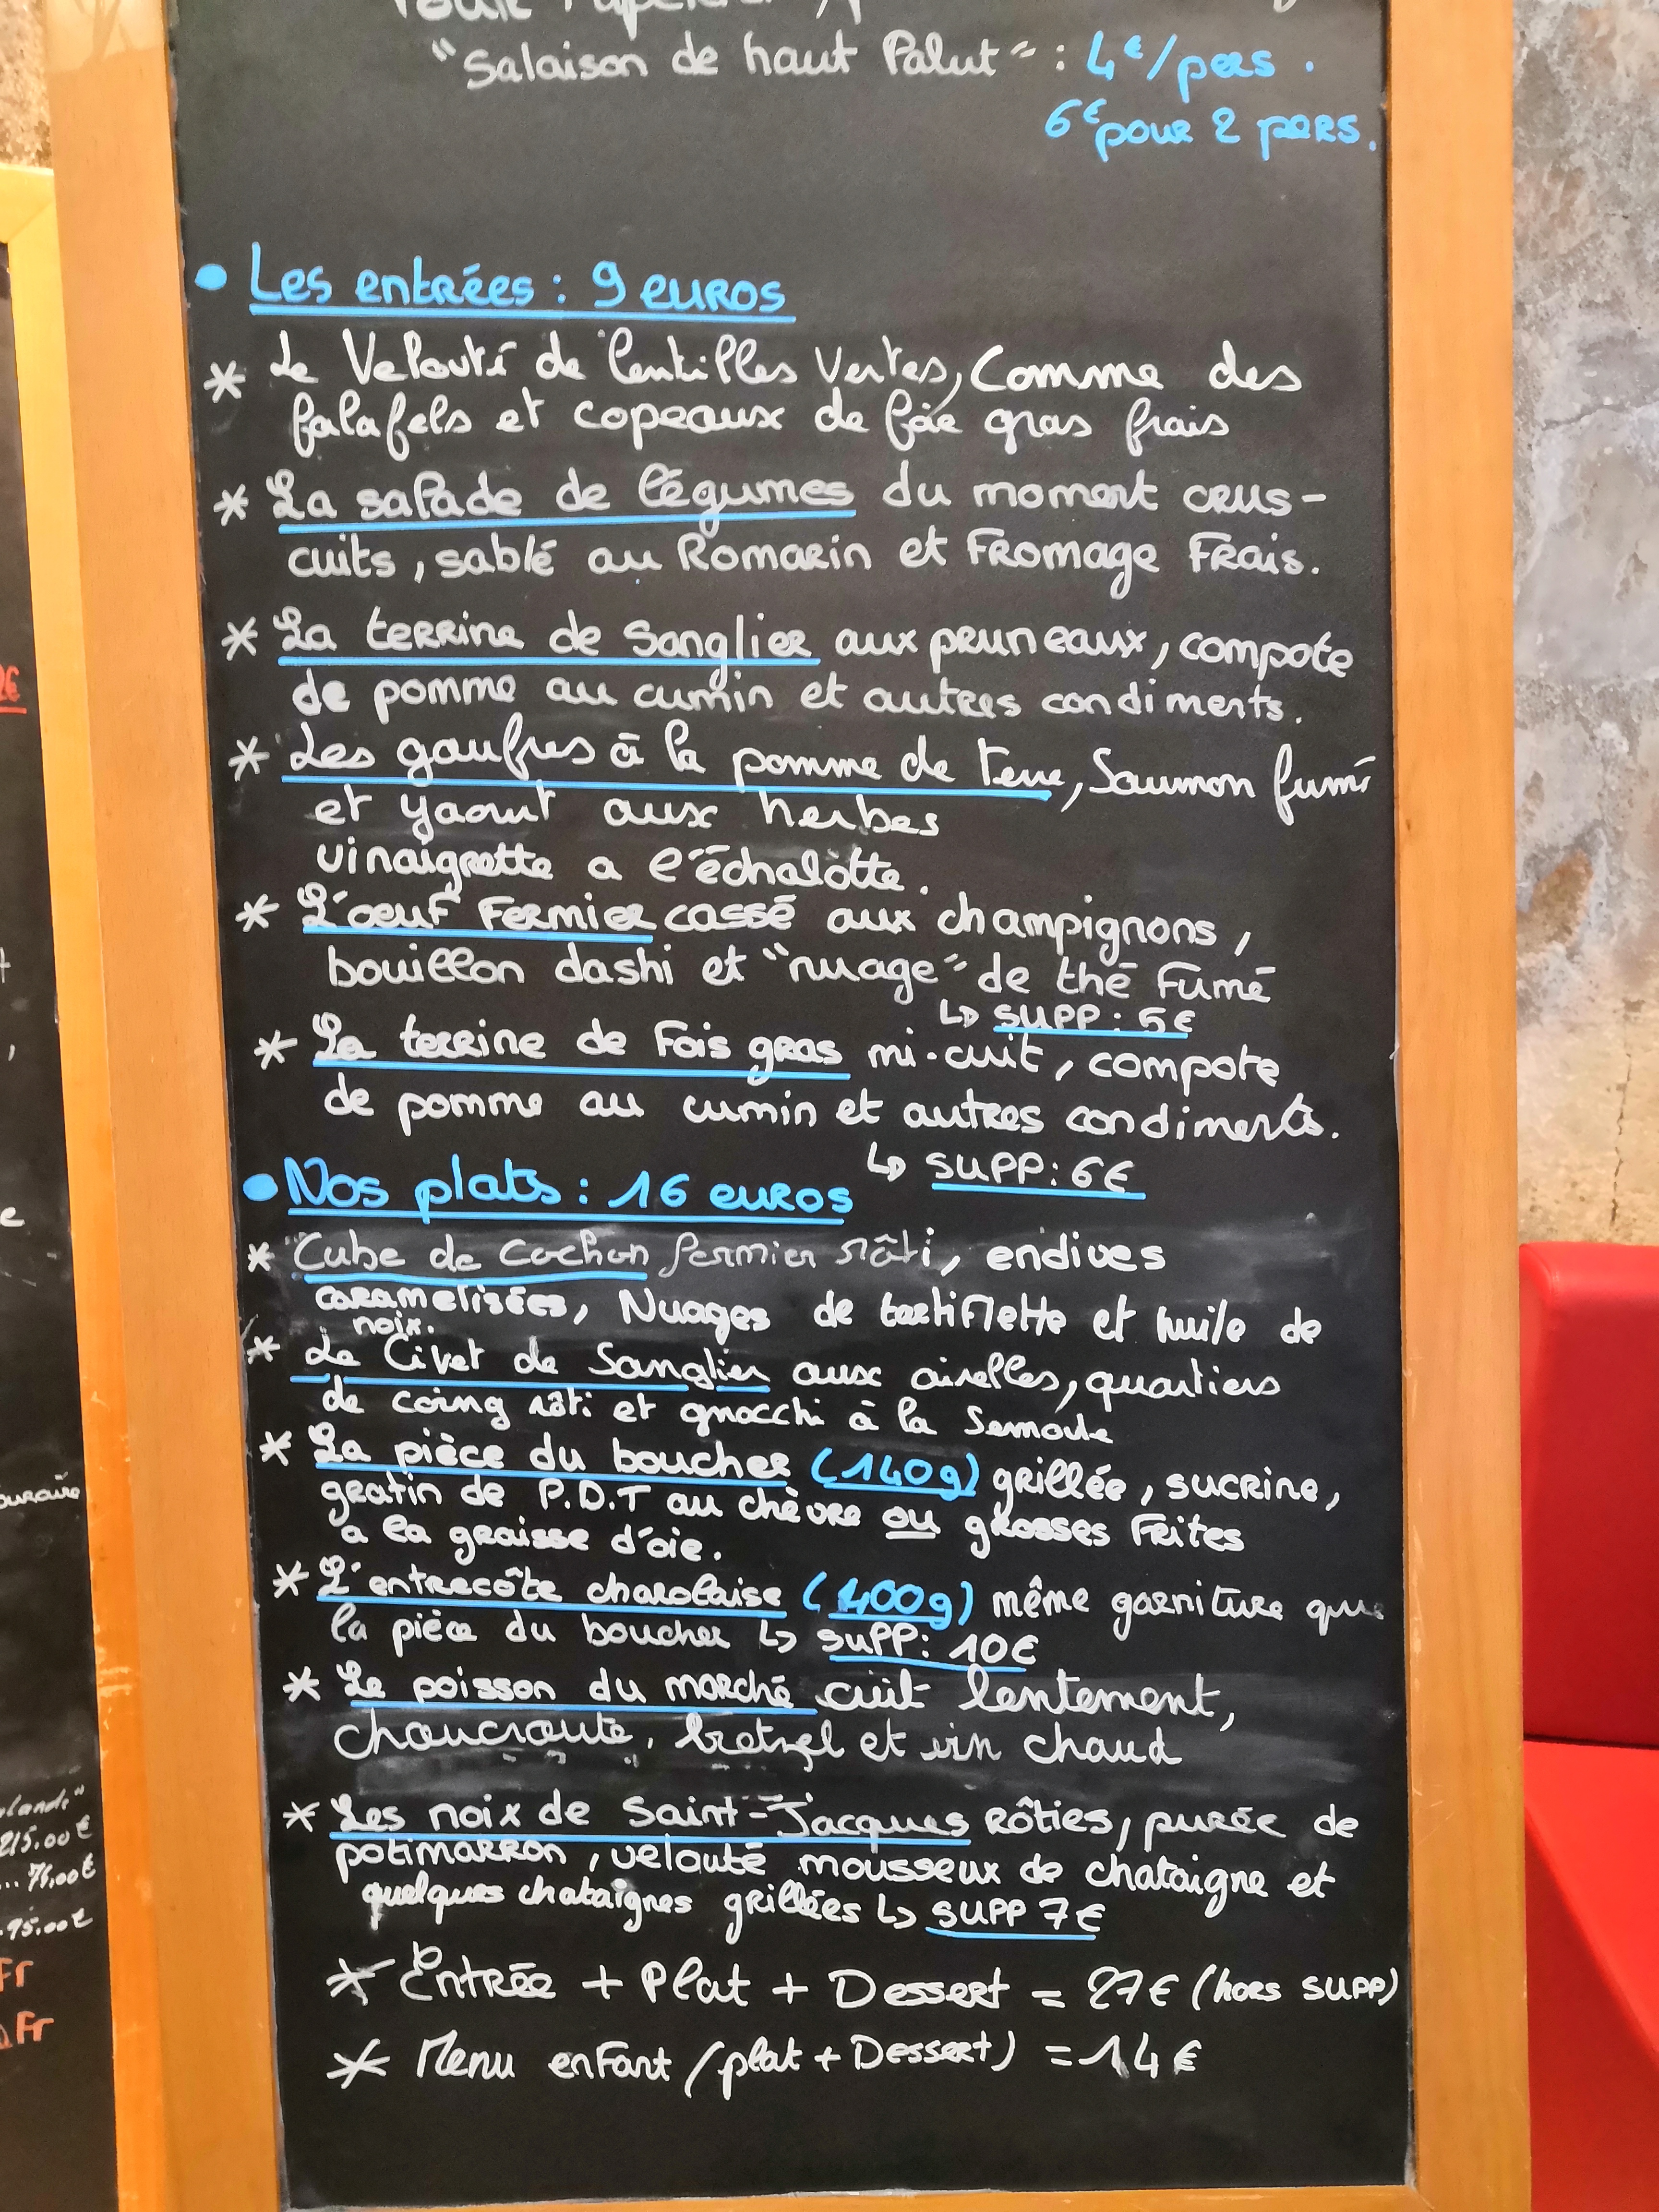 "Salaison de haut Palut" : 4€/pers.
6€ pour 2 pers.
• Les entrées : 9 euros
* Le Velouté de lentilles vertes, Comme des
falafels et copeaux de foie gras frais
* La salade de légumes du moment crus-
cuits, sablé au Romarin et Fromage Frais.
* La terrine de Sanglier aux pruneaux, compote
de pomme au cumin et autres condiments.
* Les gaufres à la pomme de terre, Saumon fumé
et yaourt aux herbes
vinaigrette a l'échalòtte.
* L'oeuf Fermier cassé aux champignons,
bouillon dashi et "nuage" de thé Fumé
↳ SUPP : 5€
* La terrine de Fois gras mi-cuit, compote
de pomme au cumin et autres condiments.
↳ SUPP : 6€
• Nos plats : 16 euros
* Cube de Cochon fermier rôti, endives
caramelisées, Nuages de tartiflette et huile de
noix.
* Le Civet de Sanglier aux airelles, quartiers
de coing rôti et gnocchi à la Semoule
* La pièce du boucher (140g) grillée, sucrine,
gratin de P.D.T au chèvre ou grosses Frites
a la graisse d'oie.
* L'entrecôte charolaise (400g) même garniture que
la pièce du boucher ↳ SUPP : 10€
* Le poisson du marché cuit lentement,
choucroute, bretzel et vin chaud
* Les noix de Saint-Jacques Rôties, purée de
potimarron, velouté mousseux de chataigne et
quelques chataignes grillées ↳ SUPP 7€
* Entrée + Plat + Dessert = 27€ (hors SUPP)
* Menu enfant (plat + Dessert) = 14€
215.00€
... 75,00€
.95.00€
Fr
Fr